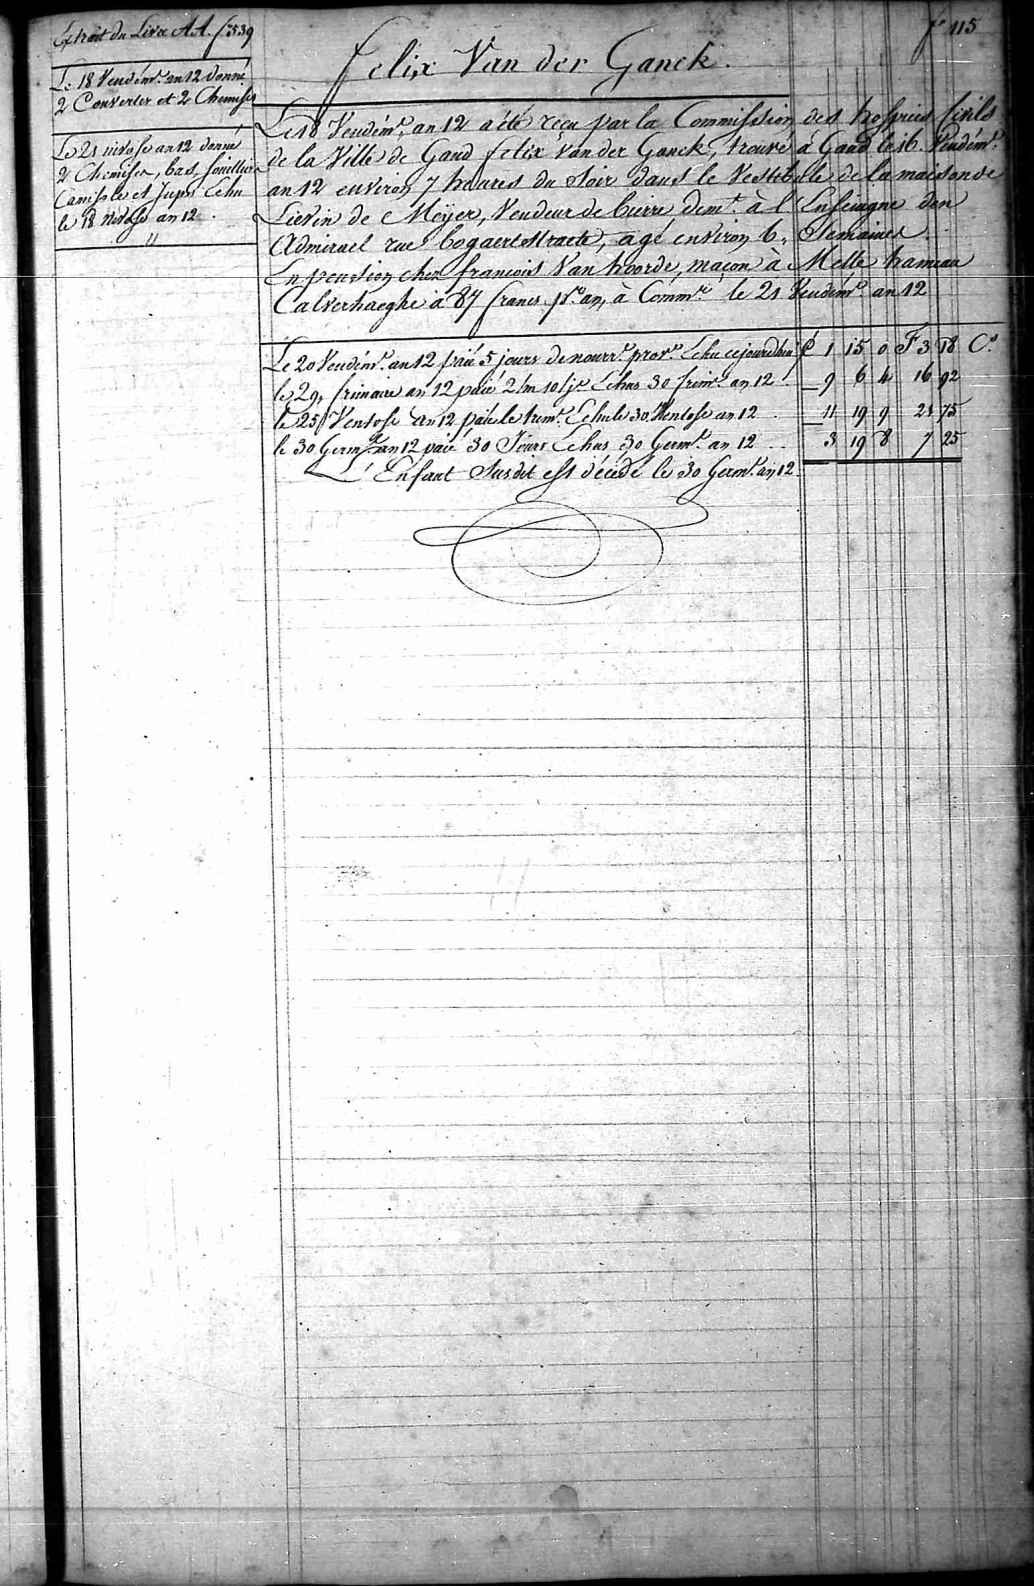 Extrait du Livre AA. f° 539
f° 115
Le 18 Vendém.re an 12 donné
2 Couvertes et 2 Chemises
Le 21 nivose an 12 donné
2 Chemises, bas, souilliers
Camisole et Jupn Echu
le 18 Nivose an 12.
Felix Van der Ganck.
Le 18 Vendém.re an 12 a été reçu par la Commission des hospices Civils
de la Ville de Gand felix Van der Ganck, trouvé à Gand le 16. Vendém.re
an 12 environ 7 heures du Soir dans le Vestibule de la maison de
Lievin de Meÿer, Vendeur de bierre dem.t à l'Enseingne den
Admirael rue bogaertstraete, agé environ 6, Semaines.
En pension chez francois Van hoorde, maçon à Melle hameau
Calverhaeghe à 87 francs pr. an, à Comm.r le 21 Vendém.re an 12
Le 20 Vendém.re an 12 paié 5 jours de nourr.e prov.re Echu cejourdhui £ 1 15 0 F 3 18 C.s
le 29, frimaire an 12 paié 2 m 10 j.rs Echus 30 frim.re an 12. 9 6 4 16 92
le 25 Ventose an 12 paié le trim.e Echu le 30 Ventose an 12. 11 19 9 21 75
le 30 Germ.al an 12 paié 30 Jours Echus 30 Germ.l an 12 .. 3 19 8 7 25
L'Enfant Susdit est décédé le 30 Germ.l an 12.